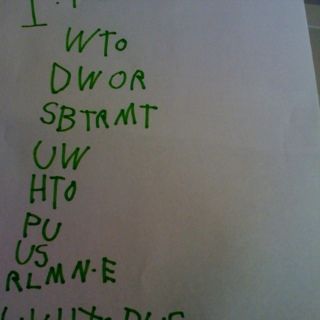 WTo
DWOR
SBTRMT
UW
HTO
PU
US
RLMN.E